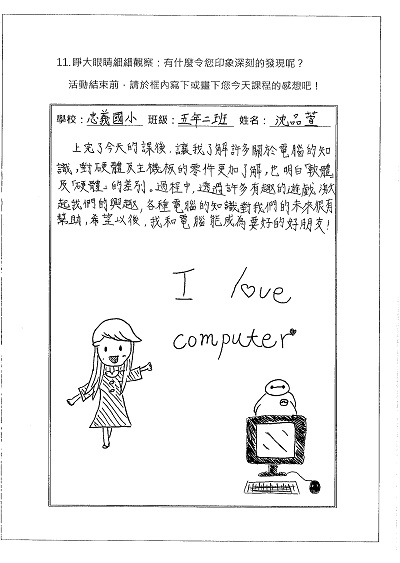 11. 睜大眼睛細細觀察：有什麼令您印象深刻的發現呢？
活動結束前，請於框內寫下或畫下您今天課程的感想吧！
學校：忠義國小 班級：五年二班 姓名：沈品萱
上完了今天的課後，讓我了解許多關於電腦的知
識，對硬體及主機板的零件更加了解，也明白「軟體」
及「硬體」的差別。過程中，透過許多有趣的遊戲，激
起我們的興趣，各種電腦的知識對我們的未來很有
幫助，希望以後，我和電腦能成為要好的好朋友！
I love
computer